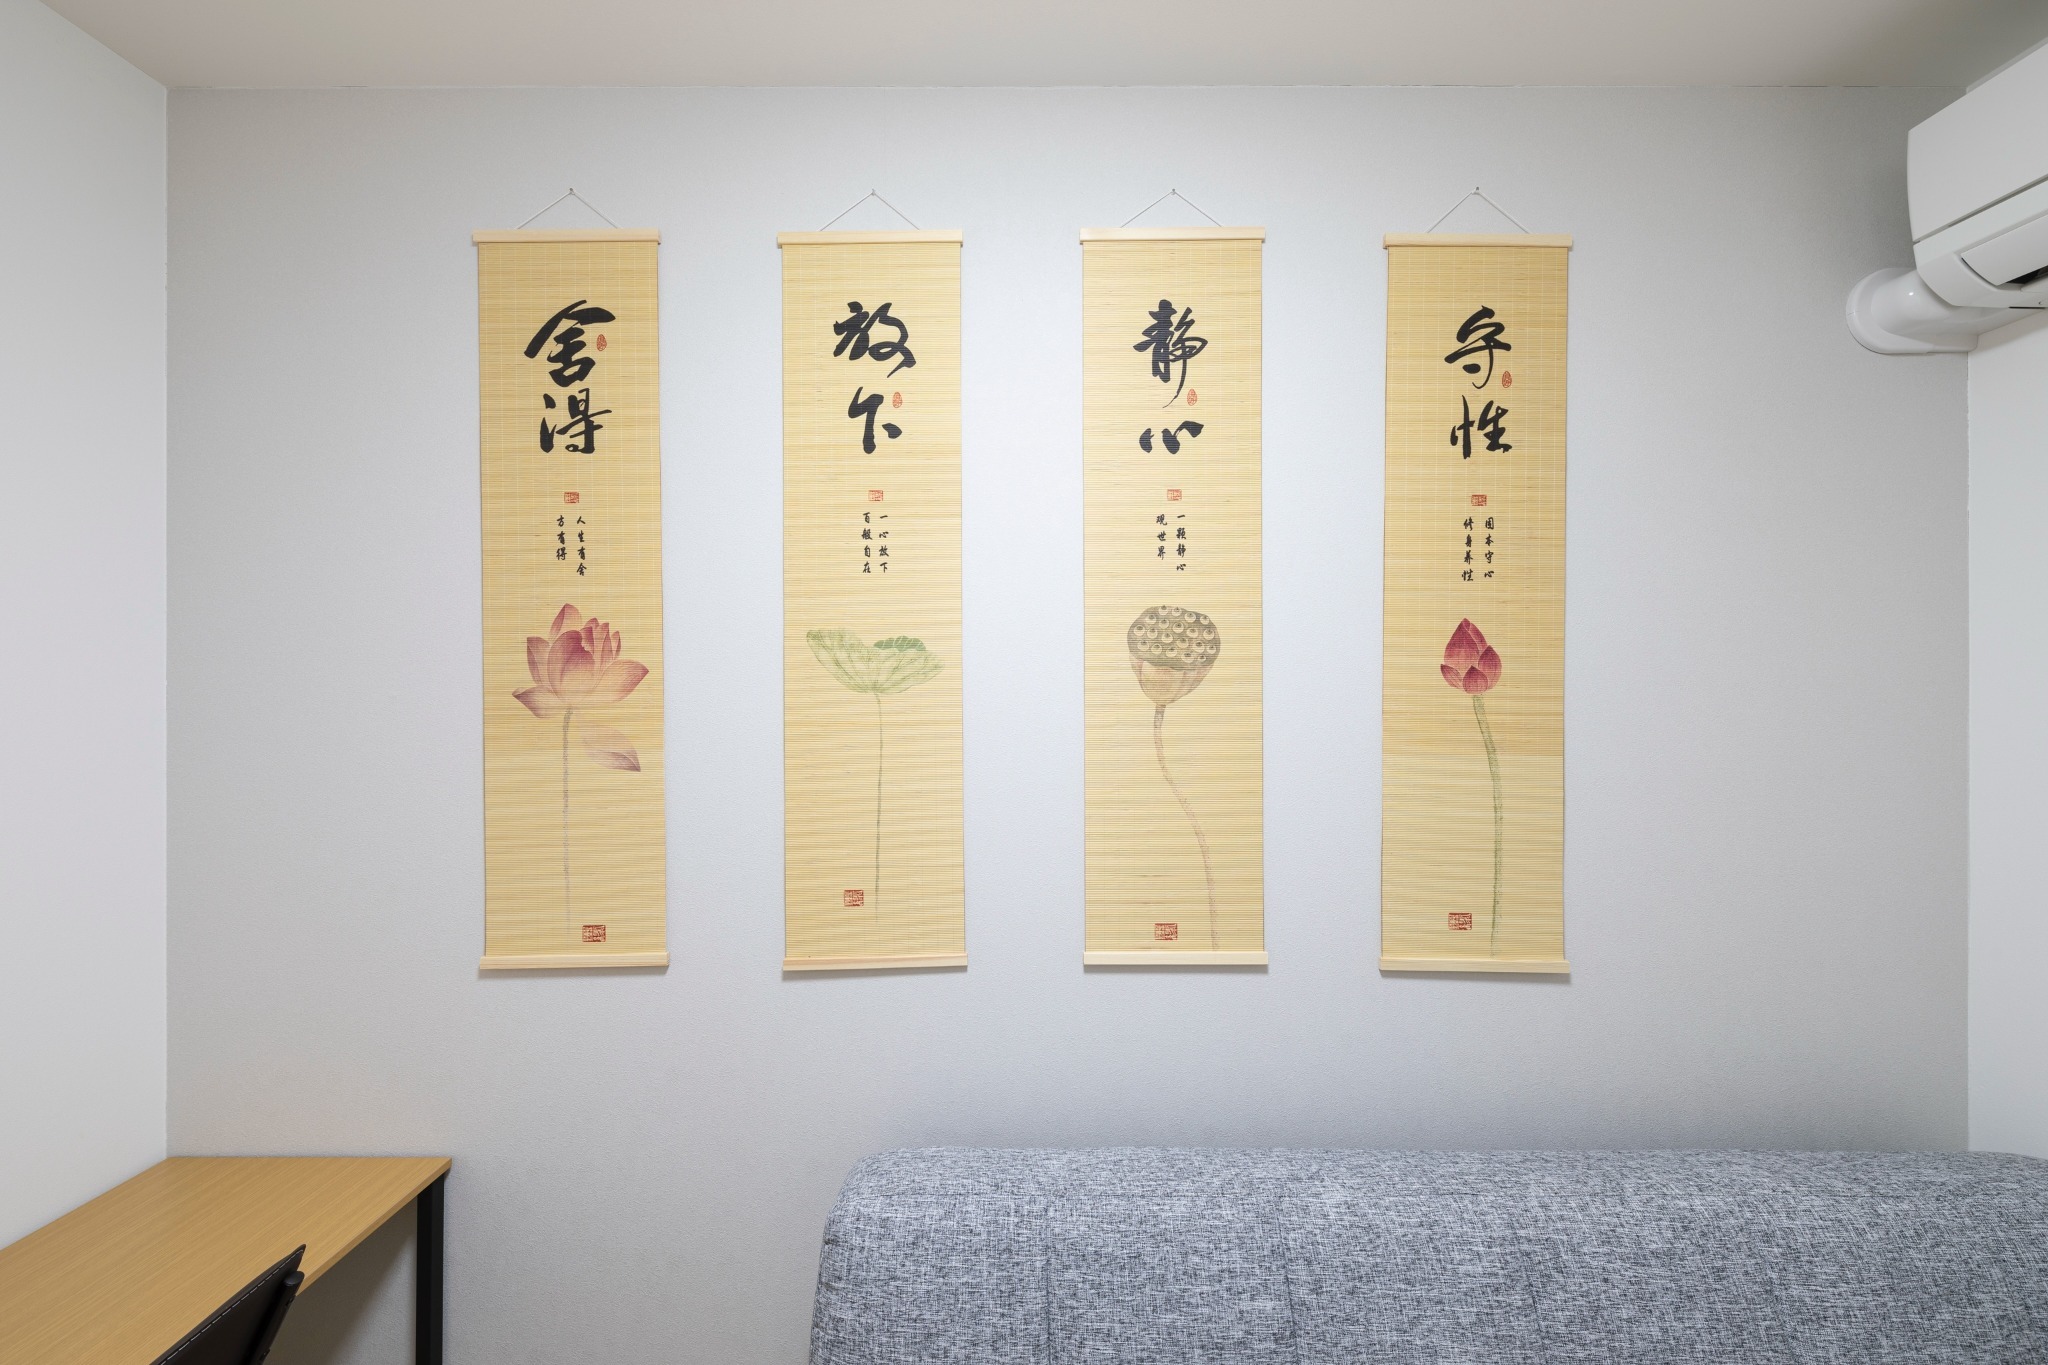 舍得
人生有舍
方有得
放下
一心放下
百般自在
静心
一颗静心
观世界
守性
固本守心
修身养性